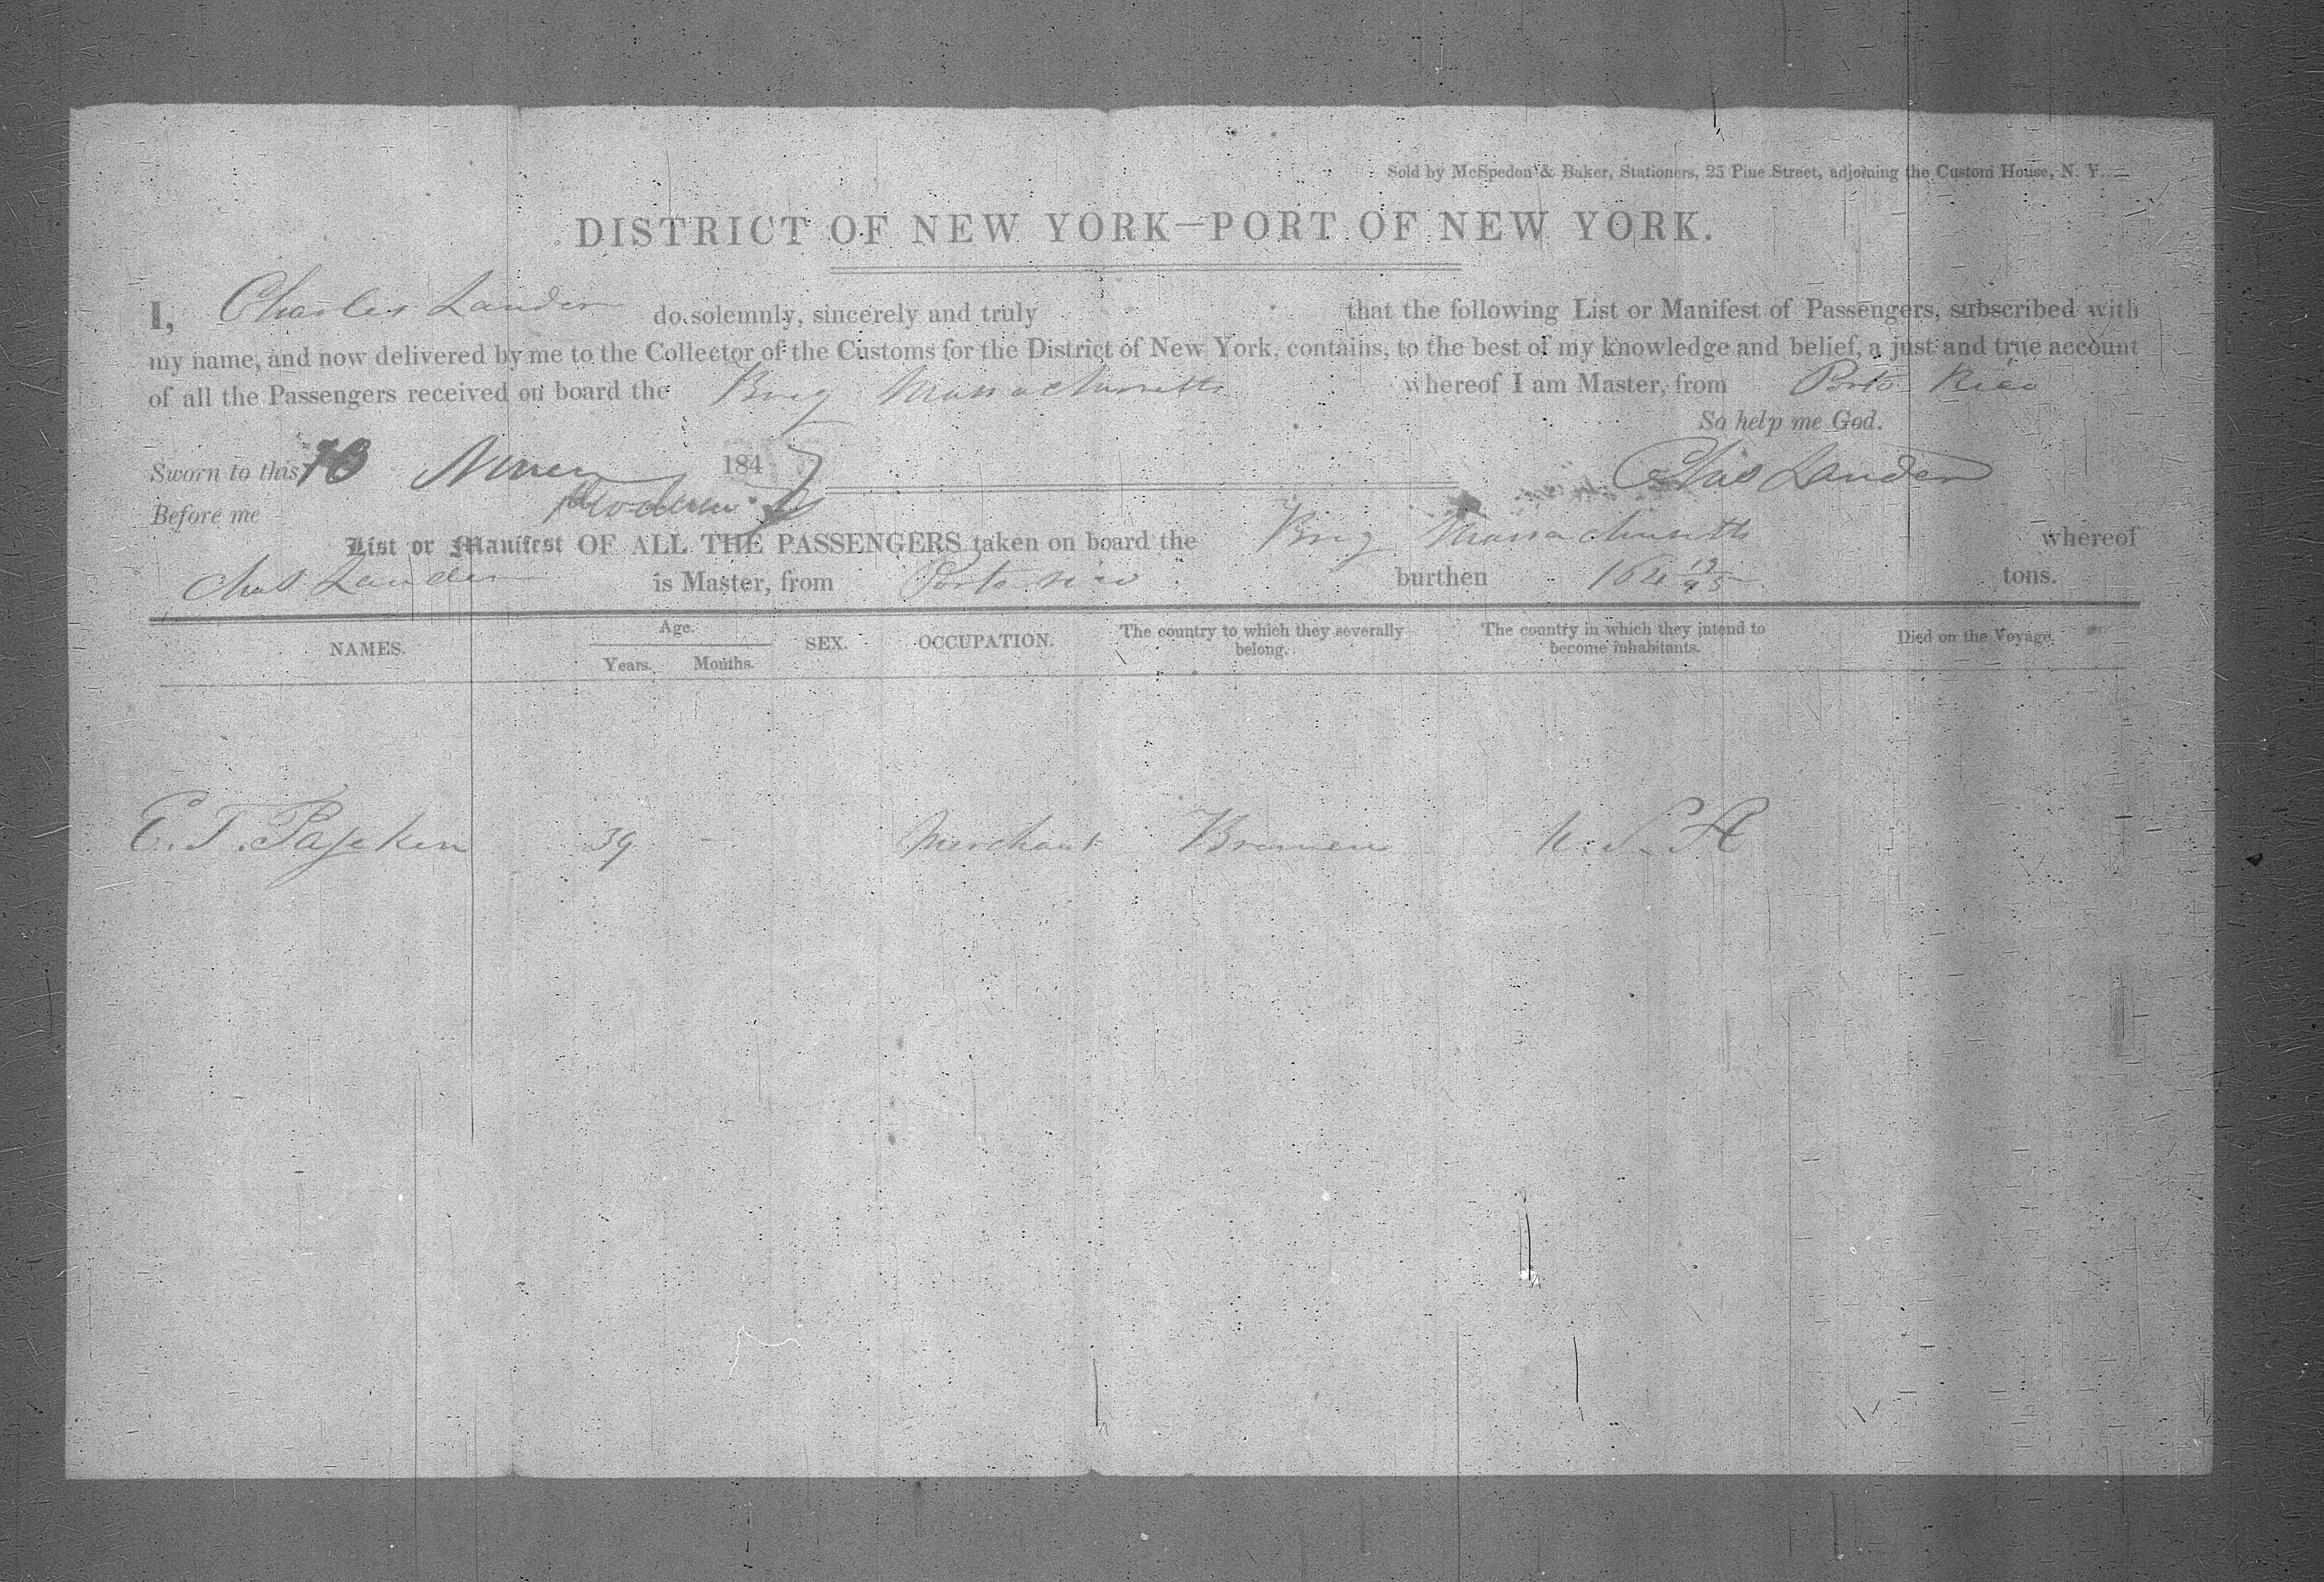 Sold by McSpedon & Baker, Stationers, 25 Pine Street, adjoining the Custom House, N. Y.
DISTRICT OF NEW YORK—PORT OF NEW YORK.
I, Charles Lander do solemnly, sincerely and truly that the following List or Manifest of Passengers, subscribed with
my name, and now delivered by me to the Collector of the Customs for the District of New York, contains, to the best of my knowledge and belief, a just and true account
of all the Passengers received on board the Brig Massachusetts whereof I am Master, from Porto Rico
So help me God.
Sworn to this 184 Chas Lander
Before me
List or Manifest OF ALL THE PASSENGERS taken on board the Brig Massachusetts whereof
Chas Lander is Master, from Porto rico burthen 164 tons.
NAMES. Age. Years. Months. SEX. OCCUPATION. The country to which they severally belong. The country in which they intend to become inhabitants. Died on the Voyage.
39 - Merchant Bremen U. S. A